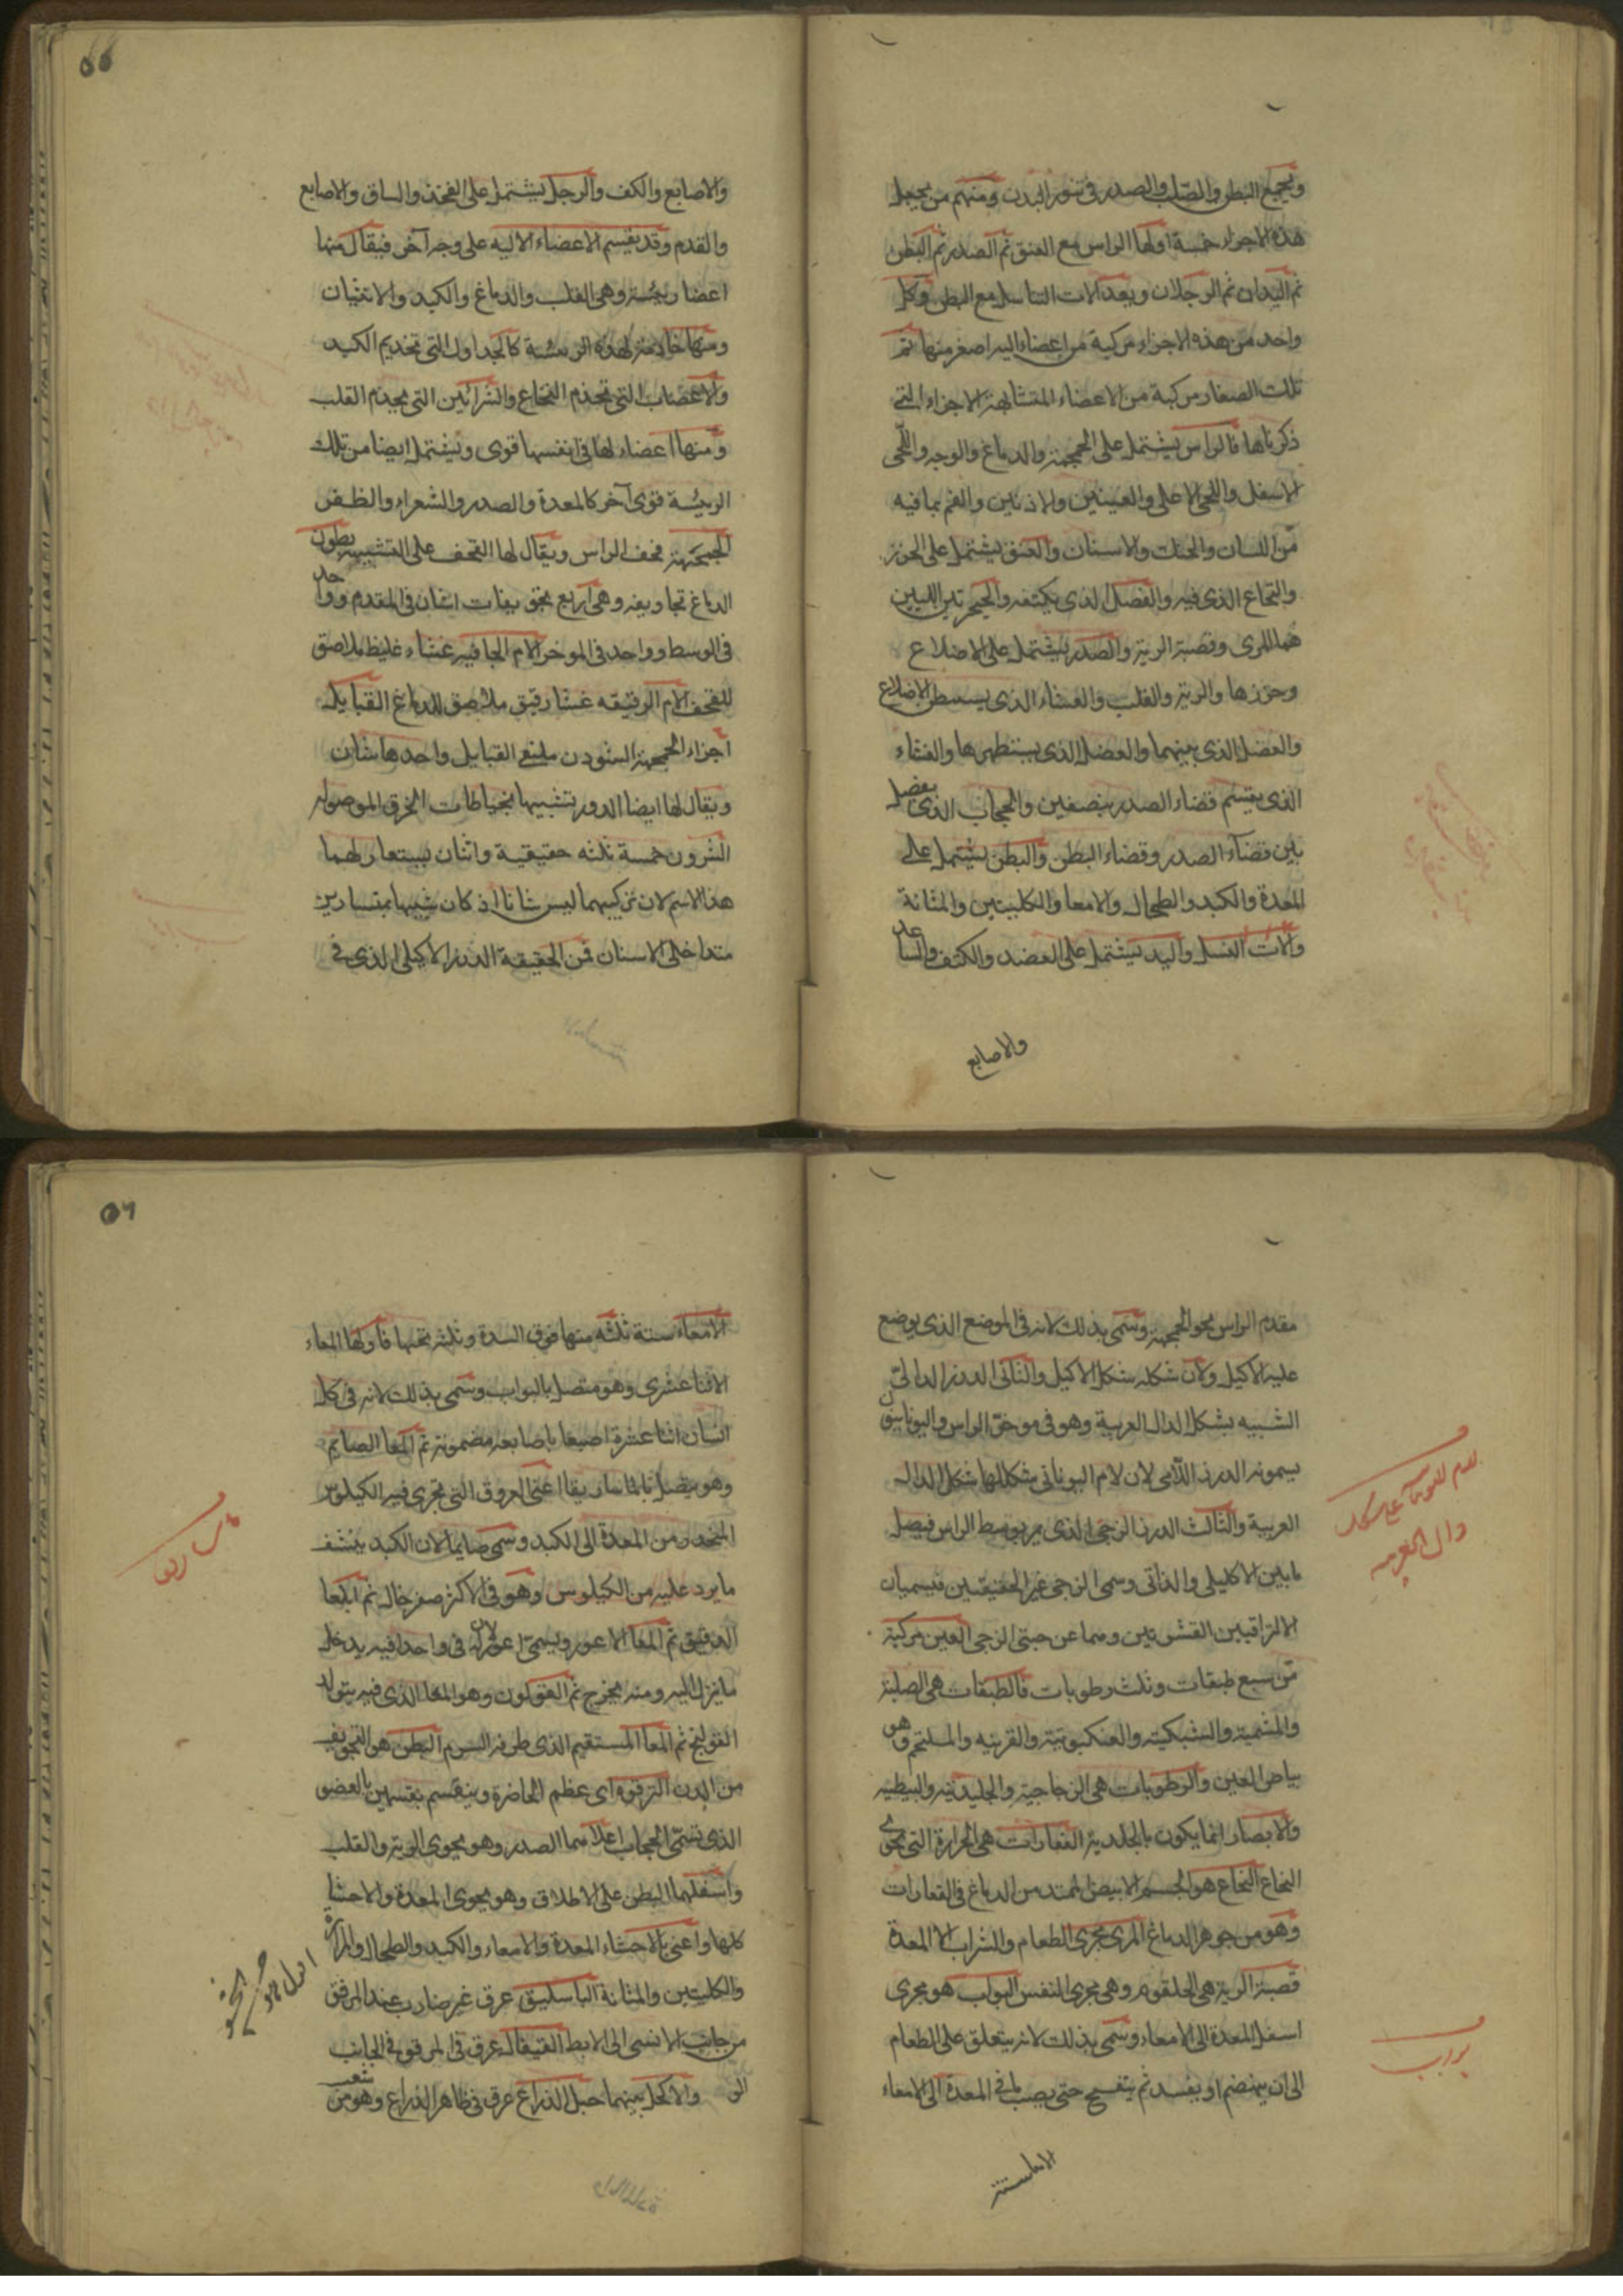 ويجمع البطن والصلب والصدر في تنور البدن ومنهم من يجعل
هذه الاجزاء خمسة اولها الراس مع العنق ثم الصدر ثم البطن
ثم اليدان ثم الرجلان ويعد الات التناسل مع البطن وكل
واحد من هذه الاجزاء مركبة من اعضاء الية اصغر منها ثم
تلك الصغار مركبة من الاعضاء المتشابهة الاجزاء التي
ذكرناها فالراس يشتمل على الجمجمة والدماغ والوجه واللحى
الاسفل واللحى الاعلى والعينين والاذنين والفم بما فيه
من اللسان والحنك والاسنان والعنق يشتمل على الخرز
والنخاع الذي فيه والفصل الذي يكتنفه والحنجرتين اللتين
هما المرى وقصبة الرية والصدر يشتمل على الاضلاع
وخرزها والرية والقلب والغشاء الذي يستبطن الاضلاع
والعضل الذي بينهما والعضل الذي يستظهرها والغشاء
الذي يقسم فضاء الصدر بنصفين والحجاب الذي يفصل
بين فضاء الصدر وفضاء البطن والبطن يشتمل على
المعدة والكبد والطحال والامعا والكليتين والمثانة
والات النسل واليد يشتمل على العضد والكتف والساعد
والاصابع
والاصابع والكف والرجل يشتمل على الفخذ والساق والاصابع
والقدم وقد يقسم الاعضاء الالية على وجه آخر فيقال منها
اعضا رئيسة وهي القلب والدماغ والكبد والانثيان
ومنها خادمة لهذه الرئيسة كالجداول التي تخديم الكبد
والاعصاب التي تخذم النخاع والشرائين التي يخذم القلب
ومنها اعضاء لها في انفسها قوى ويشتمل ايضا من تلك
الرئيسة قوى آخر كالمعدة والصدر والشعراء والظفر
الجمجمة قحف الراس ويقال لها القحف على التشبيه بطون
الدماغ تجاويفه وهي اربع تجويفات اثنان في المقدم وواحد
في الوسط وواحد في الموخر الام الجافية غشاء غليظ ملاصق
للقحف الام الرقيقه غشا رقيق ملاصق للدماغ القبايل
اجزاء الجمجمة الشودن ملتقى القبايل واحدها شان
ويقال لها ايضا الدورز تشبيها بخياطات الخرق الموصوله
الشرون خمسة ثلثه حقيقية واثنان يستعار لهما
هذا الاسم لان تركيبهما ليس شانا اذ كان شبيها بمنشارين
متداخلى الاسنان فمن الحقيقة الدرز الاكليلى الذي في
مقدم الراس نحو الجمجمة وسمى بذلك لانه في الموضع الذي يوضع
عليه الاكيل ولان شكله شكل الاكيل والثاني الدرز الدالي
الشبيه بشكل الدال العربية وهو في موخر الراس واليونانيون
يسمونه الدرز اللامى لان لام اليوناني شكلها شكل الدال
العربية والثالث الدرز الزجى الذي يمر بوسط الراس فيصل
مابين الاكليلى والدالى وسمى الزجى غير الحقيقيين فيسميان
الالتزاقيين القشريين وهما عن جنبتى الزجى العين مركبة
من سبع طبقات وثلث رطوبات فالطبقات هي الصلبة
والمشمية والشبكية والعنكبوتية والقرنيه والملتحم وهو
بياض العين والرطوبات هي الزجاجية والجليدية والبيضية
والابصار انما يكون بالجلدية الفقارات هي الخرازة التي تحوى
النخاع النخاع هو الجسم الابيض الممتد من الدماغ في الفقارات
وهو من جوهر الدماغ المرى مجرى الطعام والشراب الا المعدة
قصبة الرية هي الحلقوم وهي مجرى النفس البواب هو مجرى
اسفل المعدة الى الامعاء وسمى بذلك لانه يتعلق على الطعام
الى ان ينهضم او يفسد ثم يتفتح حتى يصب ما في المعدة الى الامعاء
بواب
الامعا ستة
الامعاء ستة ثلثه منها فوق السرة وثلثه تحتها فاولها المعاء
الاثنا عشرى وهو متصل بالبواب وسمى بذلك لانه في كل
انسان اثنا عشرة اصبعا باصابعه مضمومة ثم المعا الصايم
وهو يتصل بالماساريقا اعنى العروق التي تجرى فيه الكيلوس
المنحدر من المعدة الى الكبد وسمى صايما لان الكبد ينشف
مايرد عليه من الكيلوس وهو في الاكثر صفر خال ثم المعا
الدقيق ثم المعا الاعور ويسمى اعور لان له في واحدا فيه يدخل
ماينزل اليه ومنه يخرج ثم القولون وهو المعا الذي فيه يتولد
القولنج ثم المعا المستقيم الذي طرفه السرم البطن هو التجويف
من لدن الترقوه اى عظم الخاصرة وينقسم بقسمين بالعضو
الذي تسمى الحجاب اعلاهما الصدر وهو يحوى الرية والقلب
واسفلهما البطن على الاطلاق وهو يحوى المعدة والاحشا
كلها واعنى بالاحشاء المعدة والامعاء والكبد والطحال والمرارة
والكليتين والمثانة الباسليق عرق غير ضارب عند المرفق
من جانب الانسى الى الابط القيفال عرق في المرفق في الجانب
الو والاكحل بينهما حبل الذراع عرق في ظاهر الذراع وهو من شعب